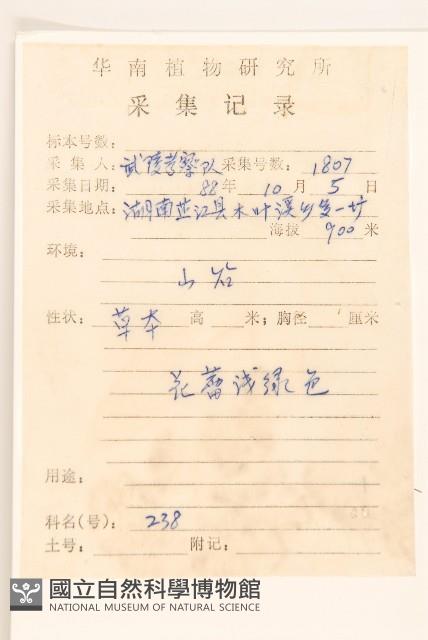 华南植物研究所
采集记录
标本号数：
采集人：武陵考察队 采集号数：1807
采集日期：88年10月5日
采集地点：湖南芷江县木叶溪乡
海拔 900 米
环境：
山谷
性状：草本 高 米；胸径 厘米
花蕾浅绿色
用途：
科名(号)：238
土号： 附记：
國立自然科學博物館
NATIONAL MUSEUM OF NATURAL SCIENCE